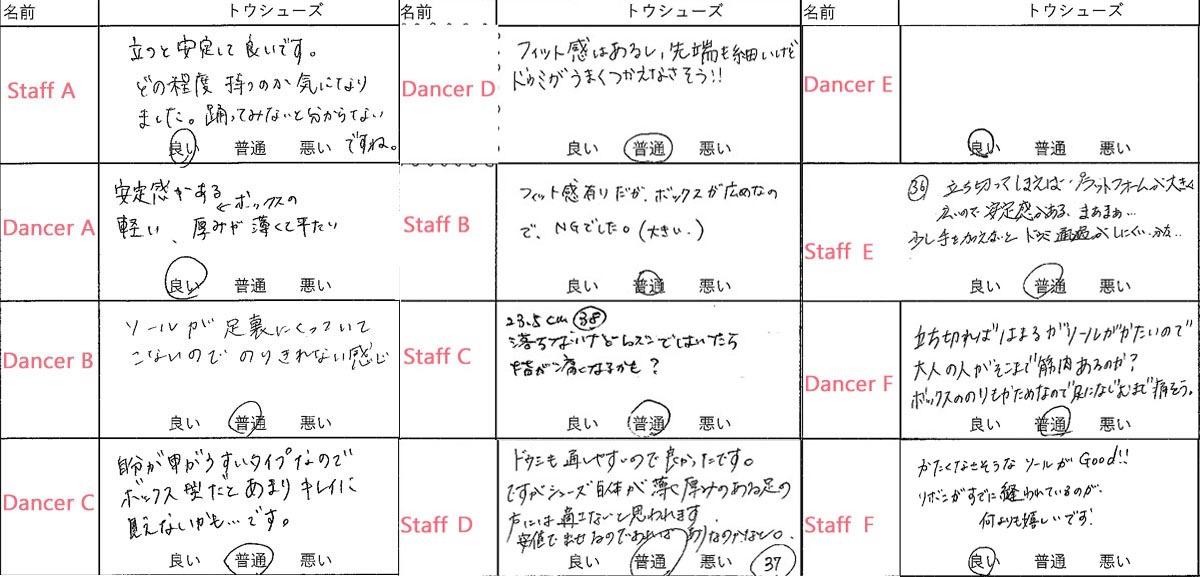 名前 トウシューズ
Staff A
立つと安定して良いです。
どの程度 持つのか気になり
ました。踊ってみないと分からない
ですね。
良い 普通 悪い
Dancer A
安定感がある
←ボックスの
軽い、厚みが薄くて平たい
良い 普通 悪い
Dancer B
ソールが足裏にくっついて
こないのでのりきれない感じ
良い 普通 悪い
Dancer C
自分が甲がうすいタイプなので
ボックス型だとあまりキレイに
見えないかも…です。
良い 普通 悪い
名前 トウシューズ
Dancer D
フィット感はあるし、先端も細いけど
ドゥミがうまくつかえなさそう!!
良い 普通 悪い
Staff B
フィット感有りだが、ボックスが広めなの
で、NGでした。(大きい。)
良い 普通 悪い
Staff C
23.5cm 38
落ちないけどレッスンではいたら
指が痛くなるかも?
良い 普通 悪い
Staff D
ドゥミも通しやすいので良かったです。
ですがシューズ自体が薄く厚みのある足の
方には適さないと思われます
安価で出せるのであればありなのかなと。
良い 普通 悪い 37
名前 トウシューズ
Dancer E
良い 普通 悪い
Staff E
36 立ち切ってしまえば、プラットフォームが大きく
広いので安定感がある、まあまあ…
少し手を加えないとドゥミ通過がしにくいかな…
良い 普通 悪い
Dancer F
立ち切ればはまるがソールがかたいので
大人の人がそこまで筋肉あるのか?
ボックスののりもかためなので足になじむまで痛そう。
良い 普通 悪い
Staff F
かたくなさそうなソールがGood!!
リボンがすでに縫われているのが、
何よりも嬉しいです!
良い 普通 悪い